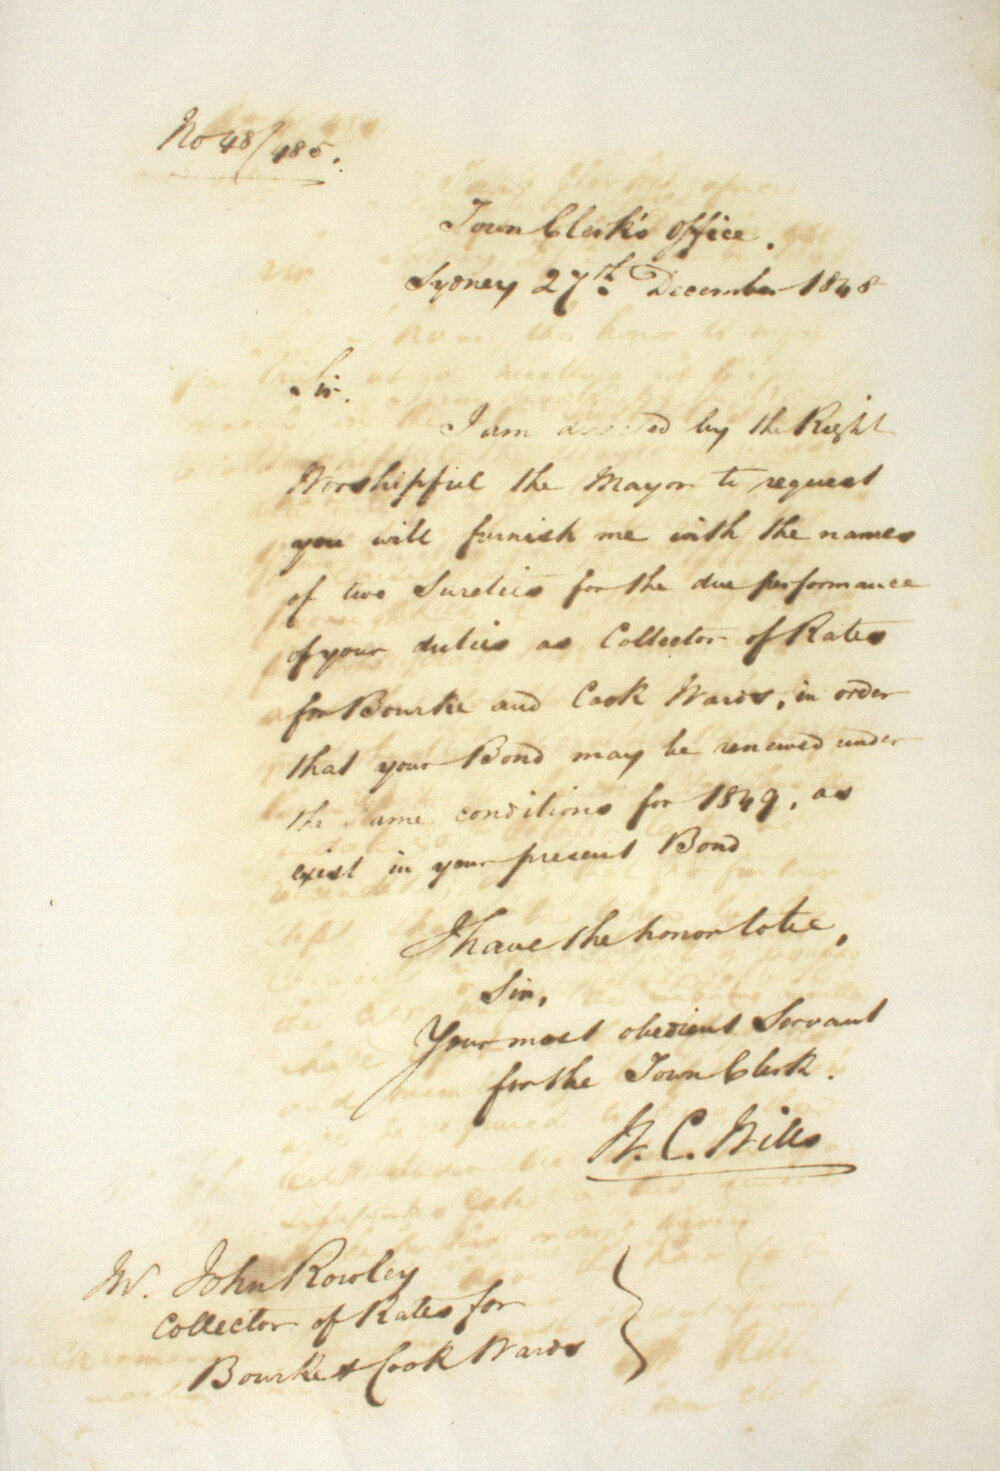 No 48/485.
Town Clerk's Office.
Sydney 27th December 1848
Sir,
I am directed by the Right
Worshipful the Mayor to request
you will furnish me with the names
of two Sureties for the due performance
of your duties as Collector of Rates
for Bourke and Cook Wards, in order
that your Bond may be renewed under
the same conditions for 1849, as
exist in your present Bond
I have the honor to be,
Sir,
Your most obedient Servant
for the Town Clerk.
W. C. Wills
Mr. John Rowley
Collector of Rates for
Bourke & Cook Wards